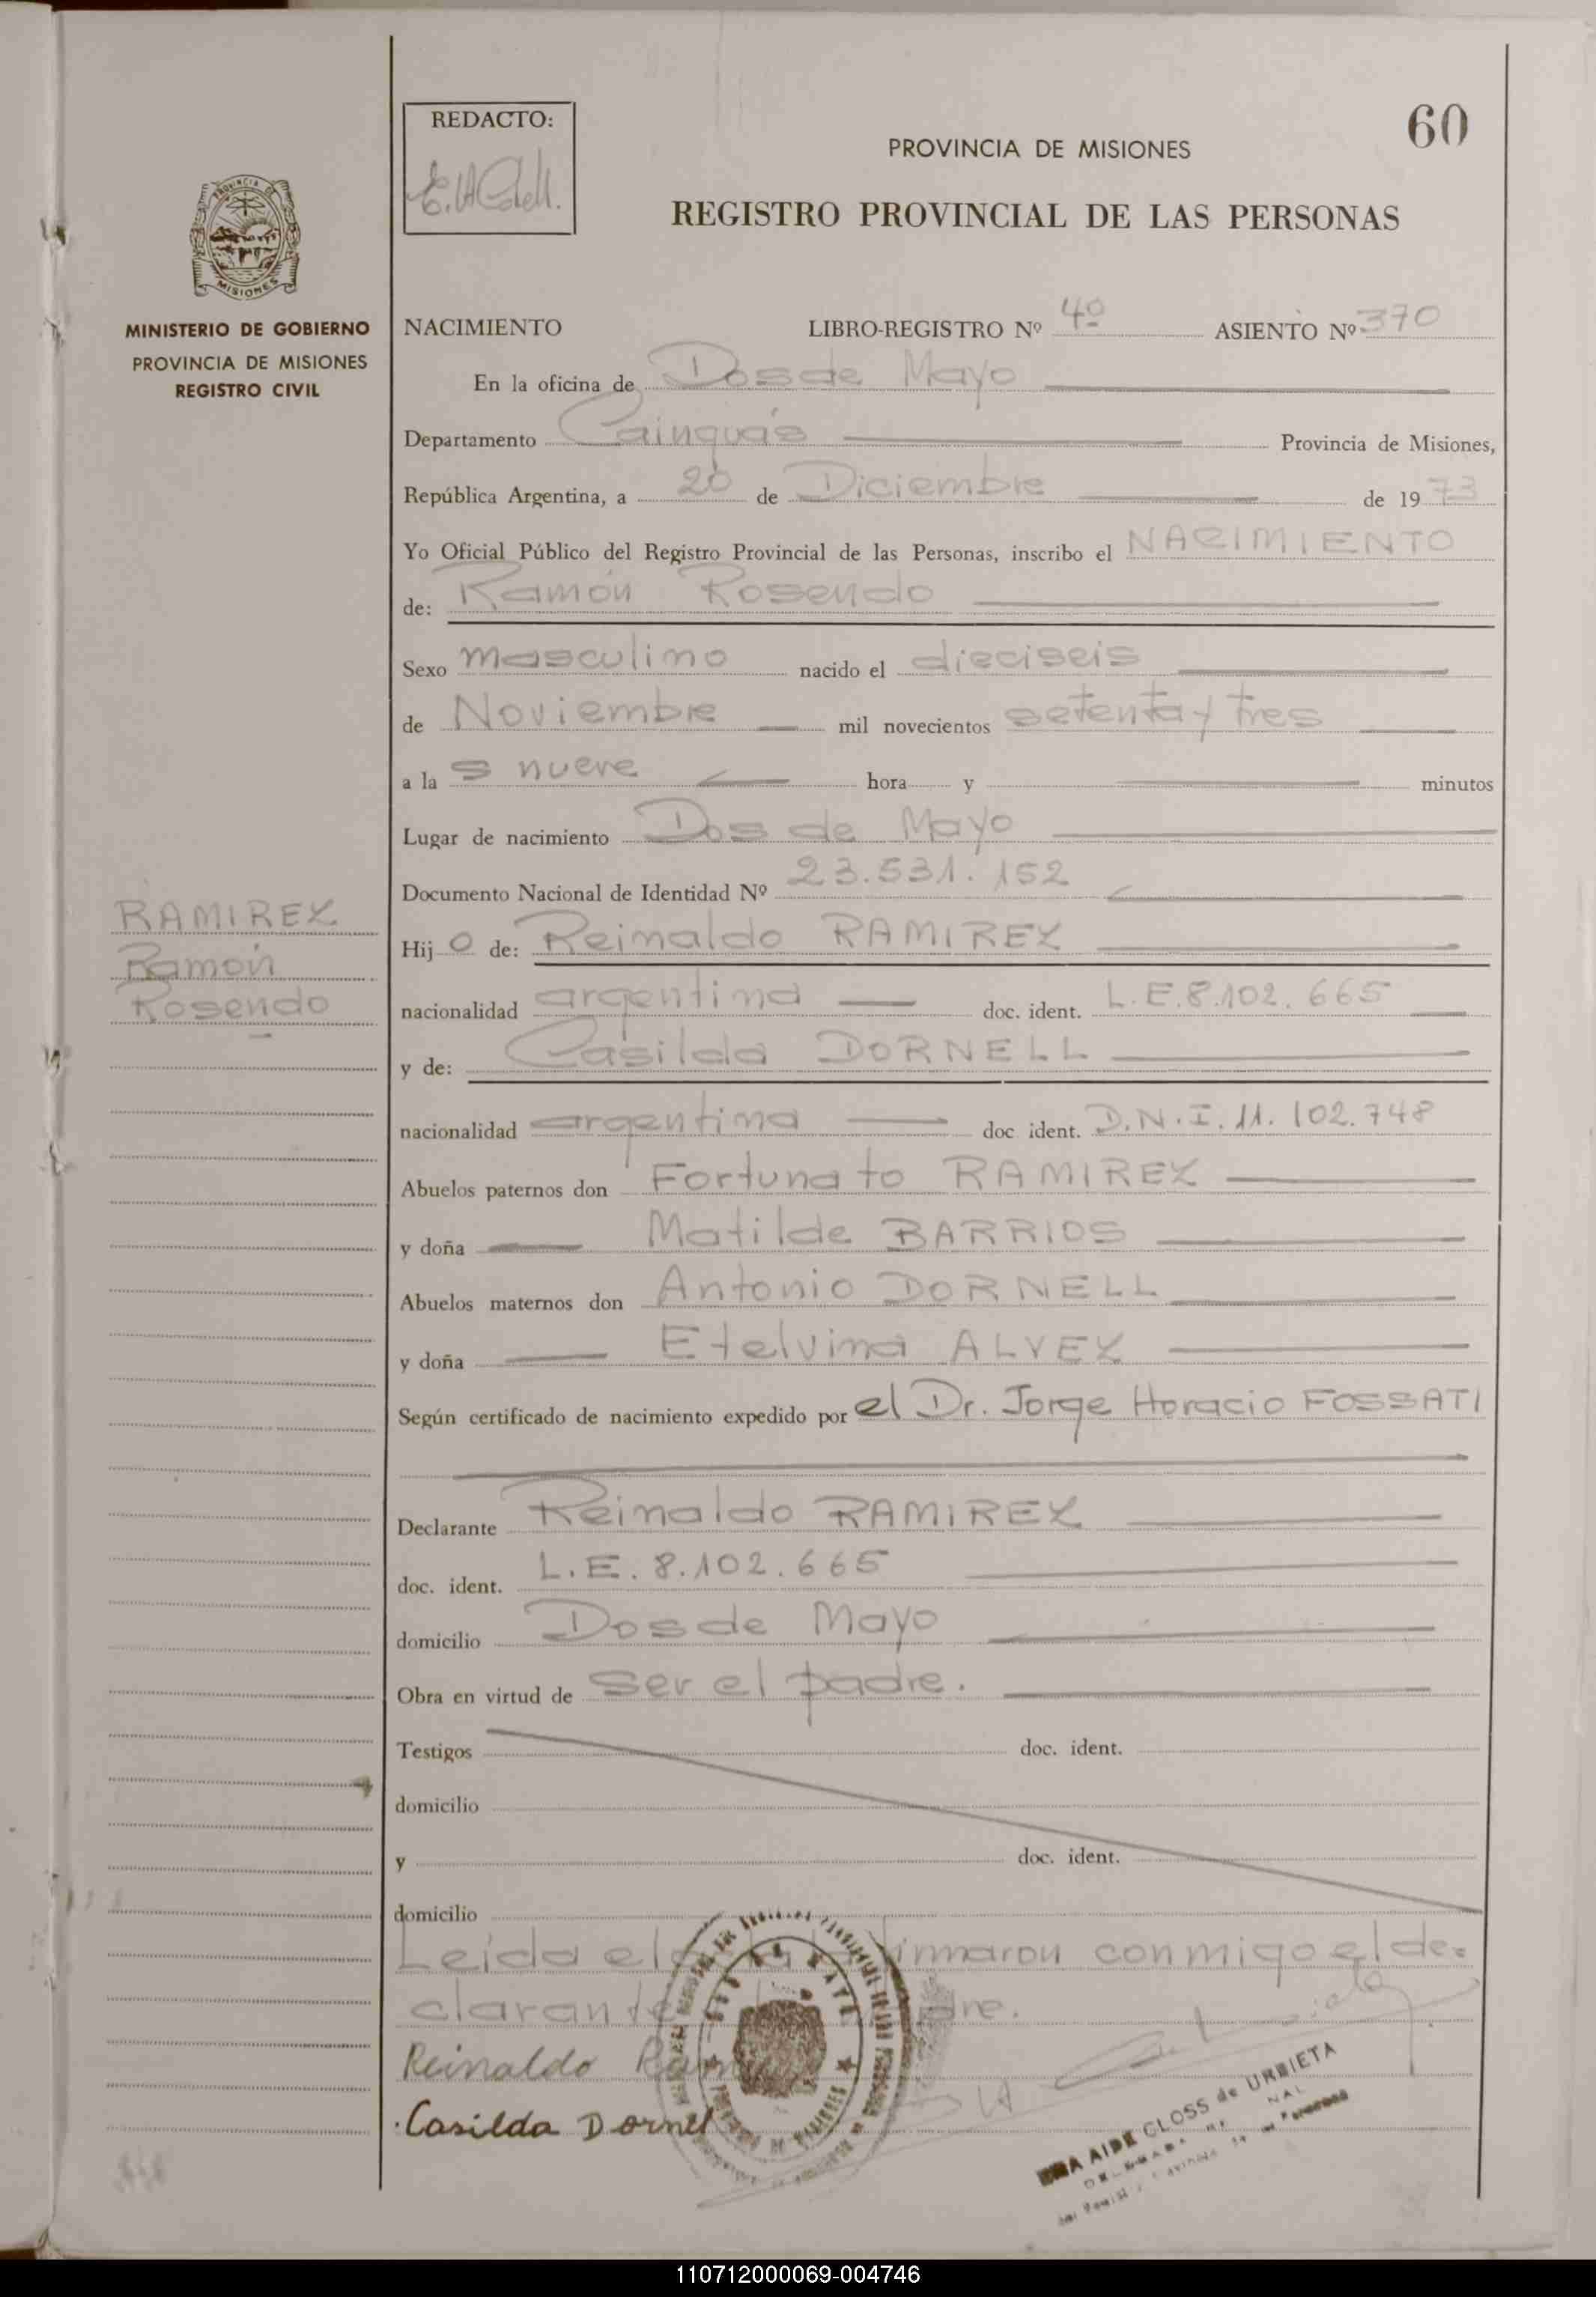 60
REDACTO:
PROVINCIA DE MISIONES
REGISTRO PROVINCIAL DE LAS PERSONAS
PROVINCIA DE
MISIONES
MINISTERIO DE GOBIERNO
PROVINCIA DE MISIONES
REGISTRO CIVIL
NACIMIENTO LIBRO-REGISTRO Nº 4º ASIENTO Nº 370
En la oficina de Dos de Mayo
Departamento Cainguás Provincia de Misiones,
República Argentina, a 20 de Diciembre de 1973
Yo Oficial Público del Registro Provincial de las Personas, inscribo el NACIMIENTO
de: Ramón Rosendo
Sexo masculino nacido el dieciseis
de Noviembre mil novecientos setenta y tres
a la s nueve hora y minutos
Lugar de nacimiento Dos de Mayo
Documento Nacional de Identidad Nº 23.531.152
RAMIREZ
Ramón
Rosendo
Hij o de: Reinaldo RAMIREZ
nacionalidad argentina doc. ident. L.E.8.102.665
y de: Casilda DORNELL
nacionalidad argentina doc ident. D.N.I. 11.102.748
Abuelos paternos don Fortunato RAMIREZ
y doña Matilde BARRIOS
Abuelos maternos don Antonio DORNELL
y doña Etelvina ALVEZ
Según certificado de nacimiento expedido por el Dr. Jorge Horacio FOSSATI
Declarante Reinaldo RAMIREZ
doc. ident. L.E. 8.102.665
domicilio Dos de Mayo
Obra en virtud de ser el padre.
Testigos doc. ident.
domicilio
y doc. ident.
domicilio
Leida el firmaron conmigo el de=
clarante
Reinaldo
Casilda Dornel
AIDE CLOSS de URBIETA
110712000069-004746